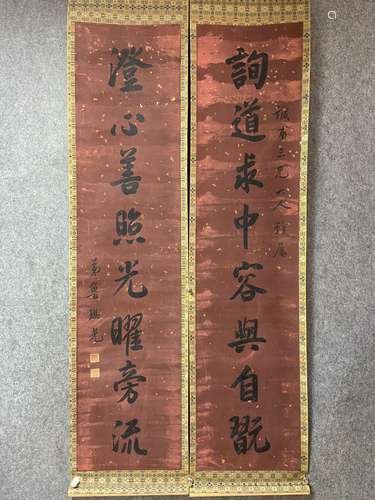 詢道求中容與自翫
澄心善照光曜旁流